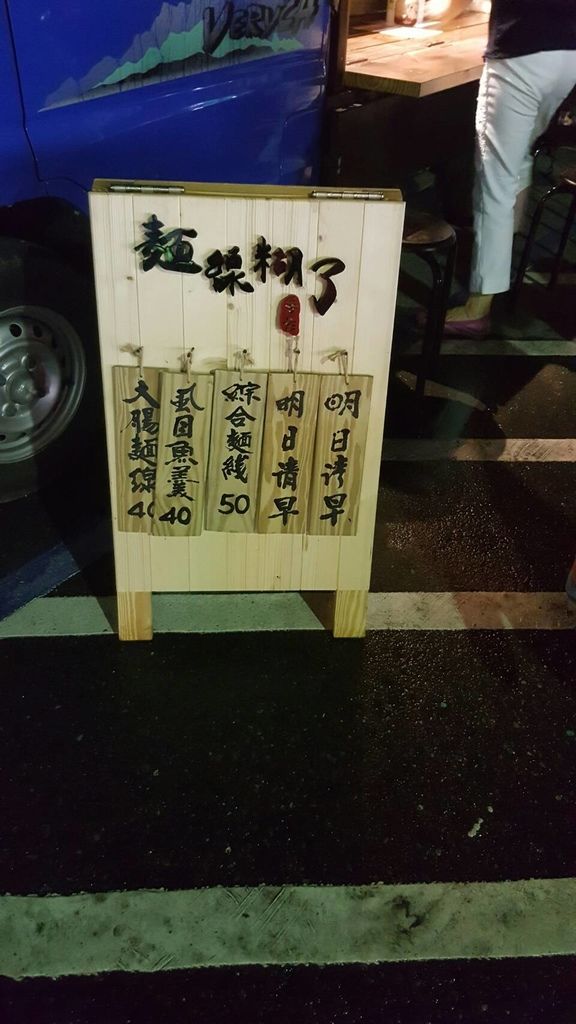 VERYCA
麵線糊了
大腸麵線40
虱目魚羹40
綜合麵線50
明日請早
明日请早